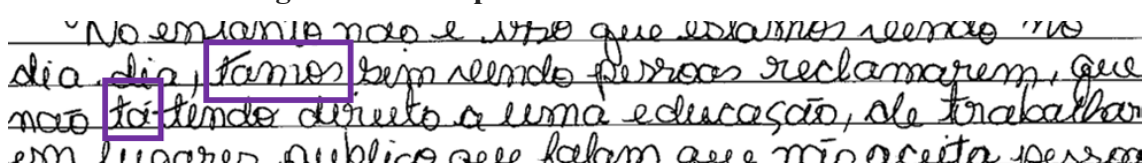 No entanto não e isso que estamos vendo no
dia dia, tamos sim vendo pessoas reclamarem, que
não tá tendo direito a uma educação, de trabalhar
em lugares publico que falam que não aceita